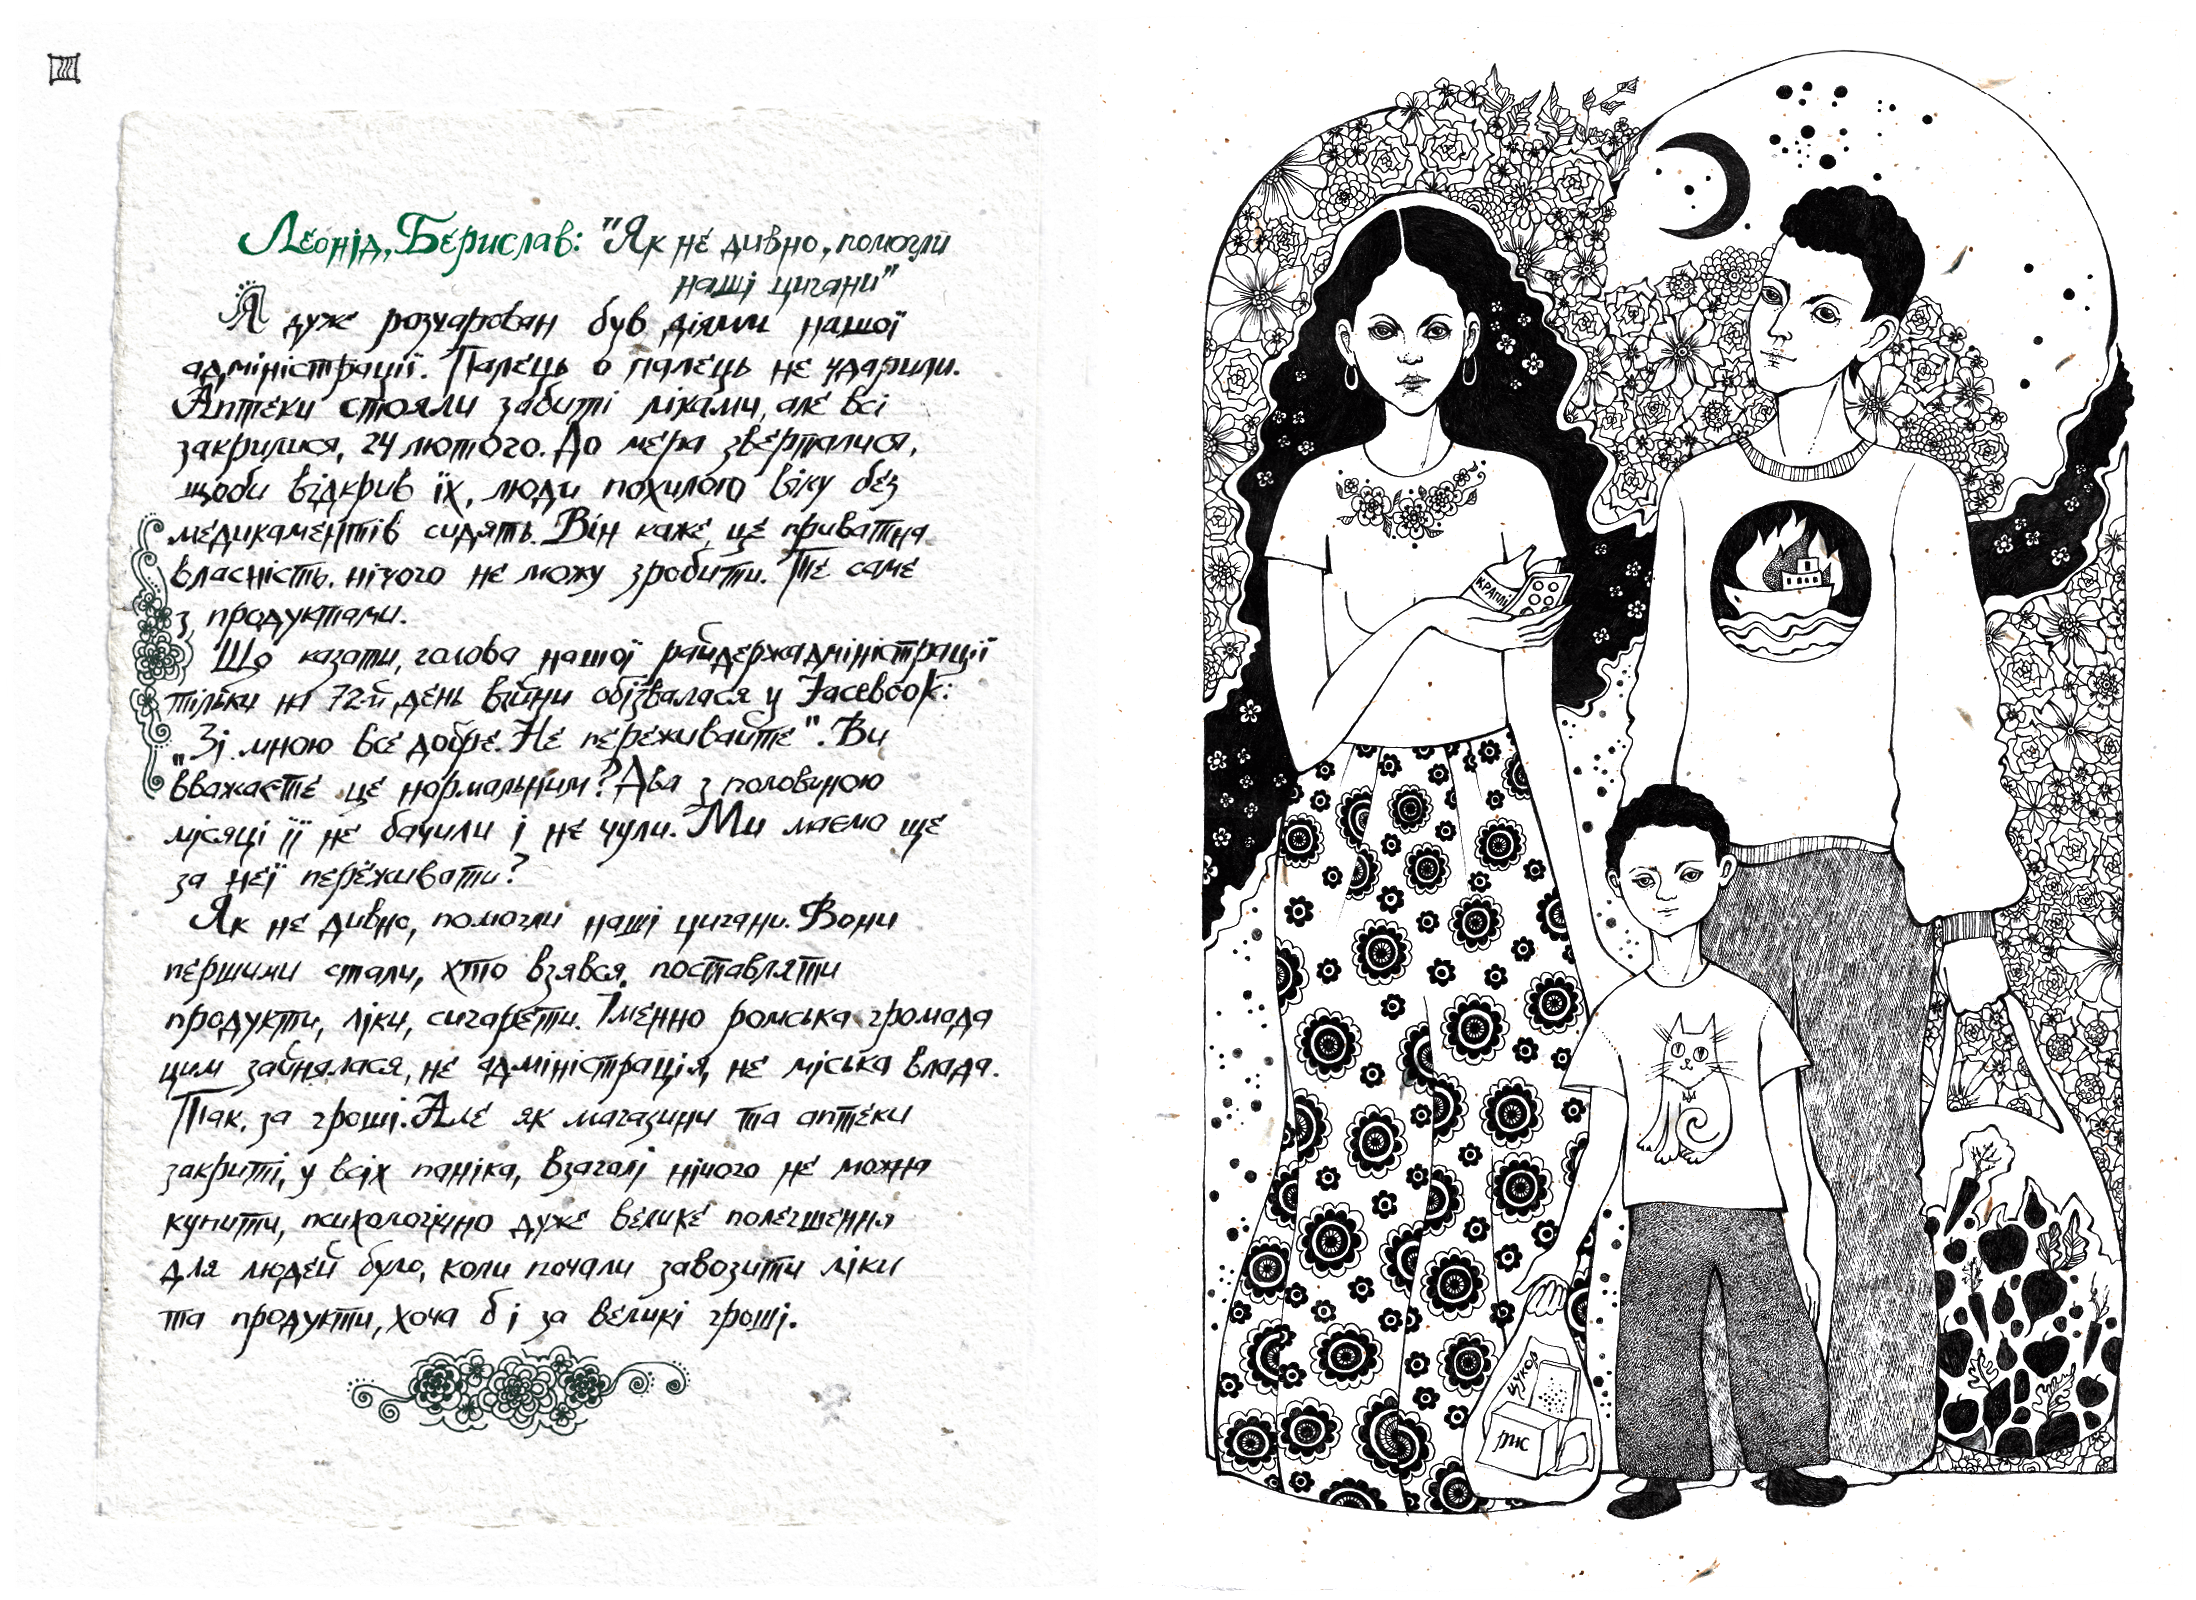 III
Леонід, Берислав: "Як не дивно, помогли
наші цигани"
Я дуже розчарован був діями нашої
адміністрації. Палець о палець не ударили.
Аптеки стояли забиті ліками, але всі
закрилися, 24 лютого. До мера зверталися,
щоби відкрив їх, люди похилого віку без
медикаментів сидять. Він каже, це приватна
власність, нічого не можу зробити. Те саме
з продуктами.
Що казати, голова нашої райдержадміністрації
тільки на 72-й день війни обізвалася у Facebook:
"Зі мною все добре. Не переживайте". Ви
вважаєте це нормальним? Два з половиною
місяці її не бачили і не чули. Ми маємо ще
за неї переживати?
Як не дивно, помогли наші цигани. Вони
першими стали, хто взявся поставляти
продукти, ліки, сигарети. Іменно ромська громада
цим зайнялася, не адміністрація, не міська влада.
Так, за гроші. Але як магазини та аптеки
закриті, у всіх паніка, взагалі нічого не можна
купити, психологічно дуже велике полегшення
для людей було, коли почали завозити ліки
та продукти, хоча б і за великі гроші.
КРАПЛІ
ЦУКОР
РИС